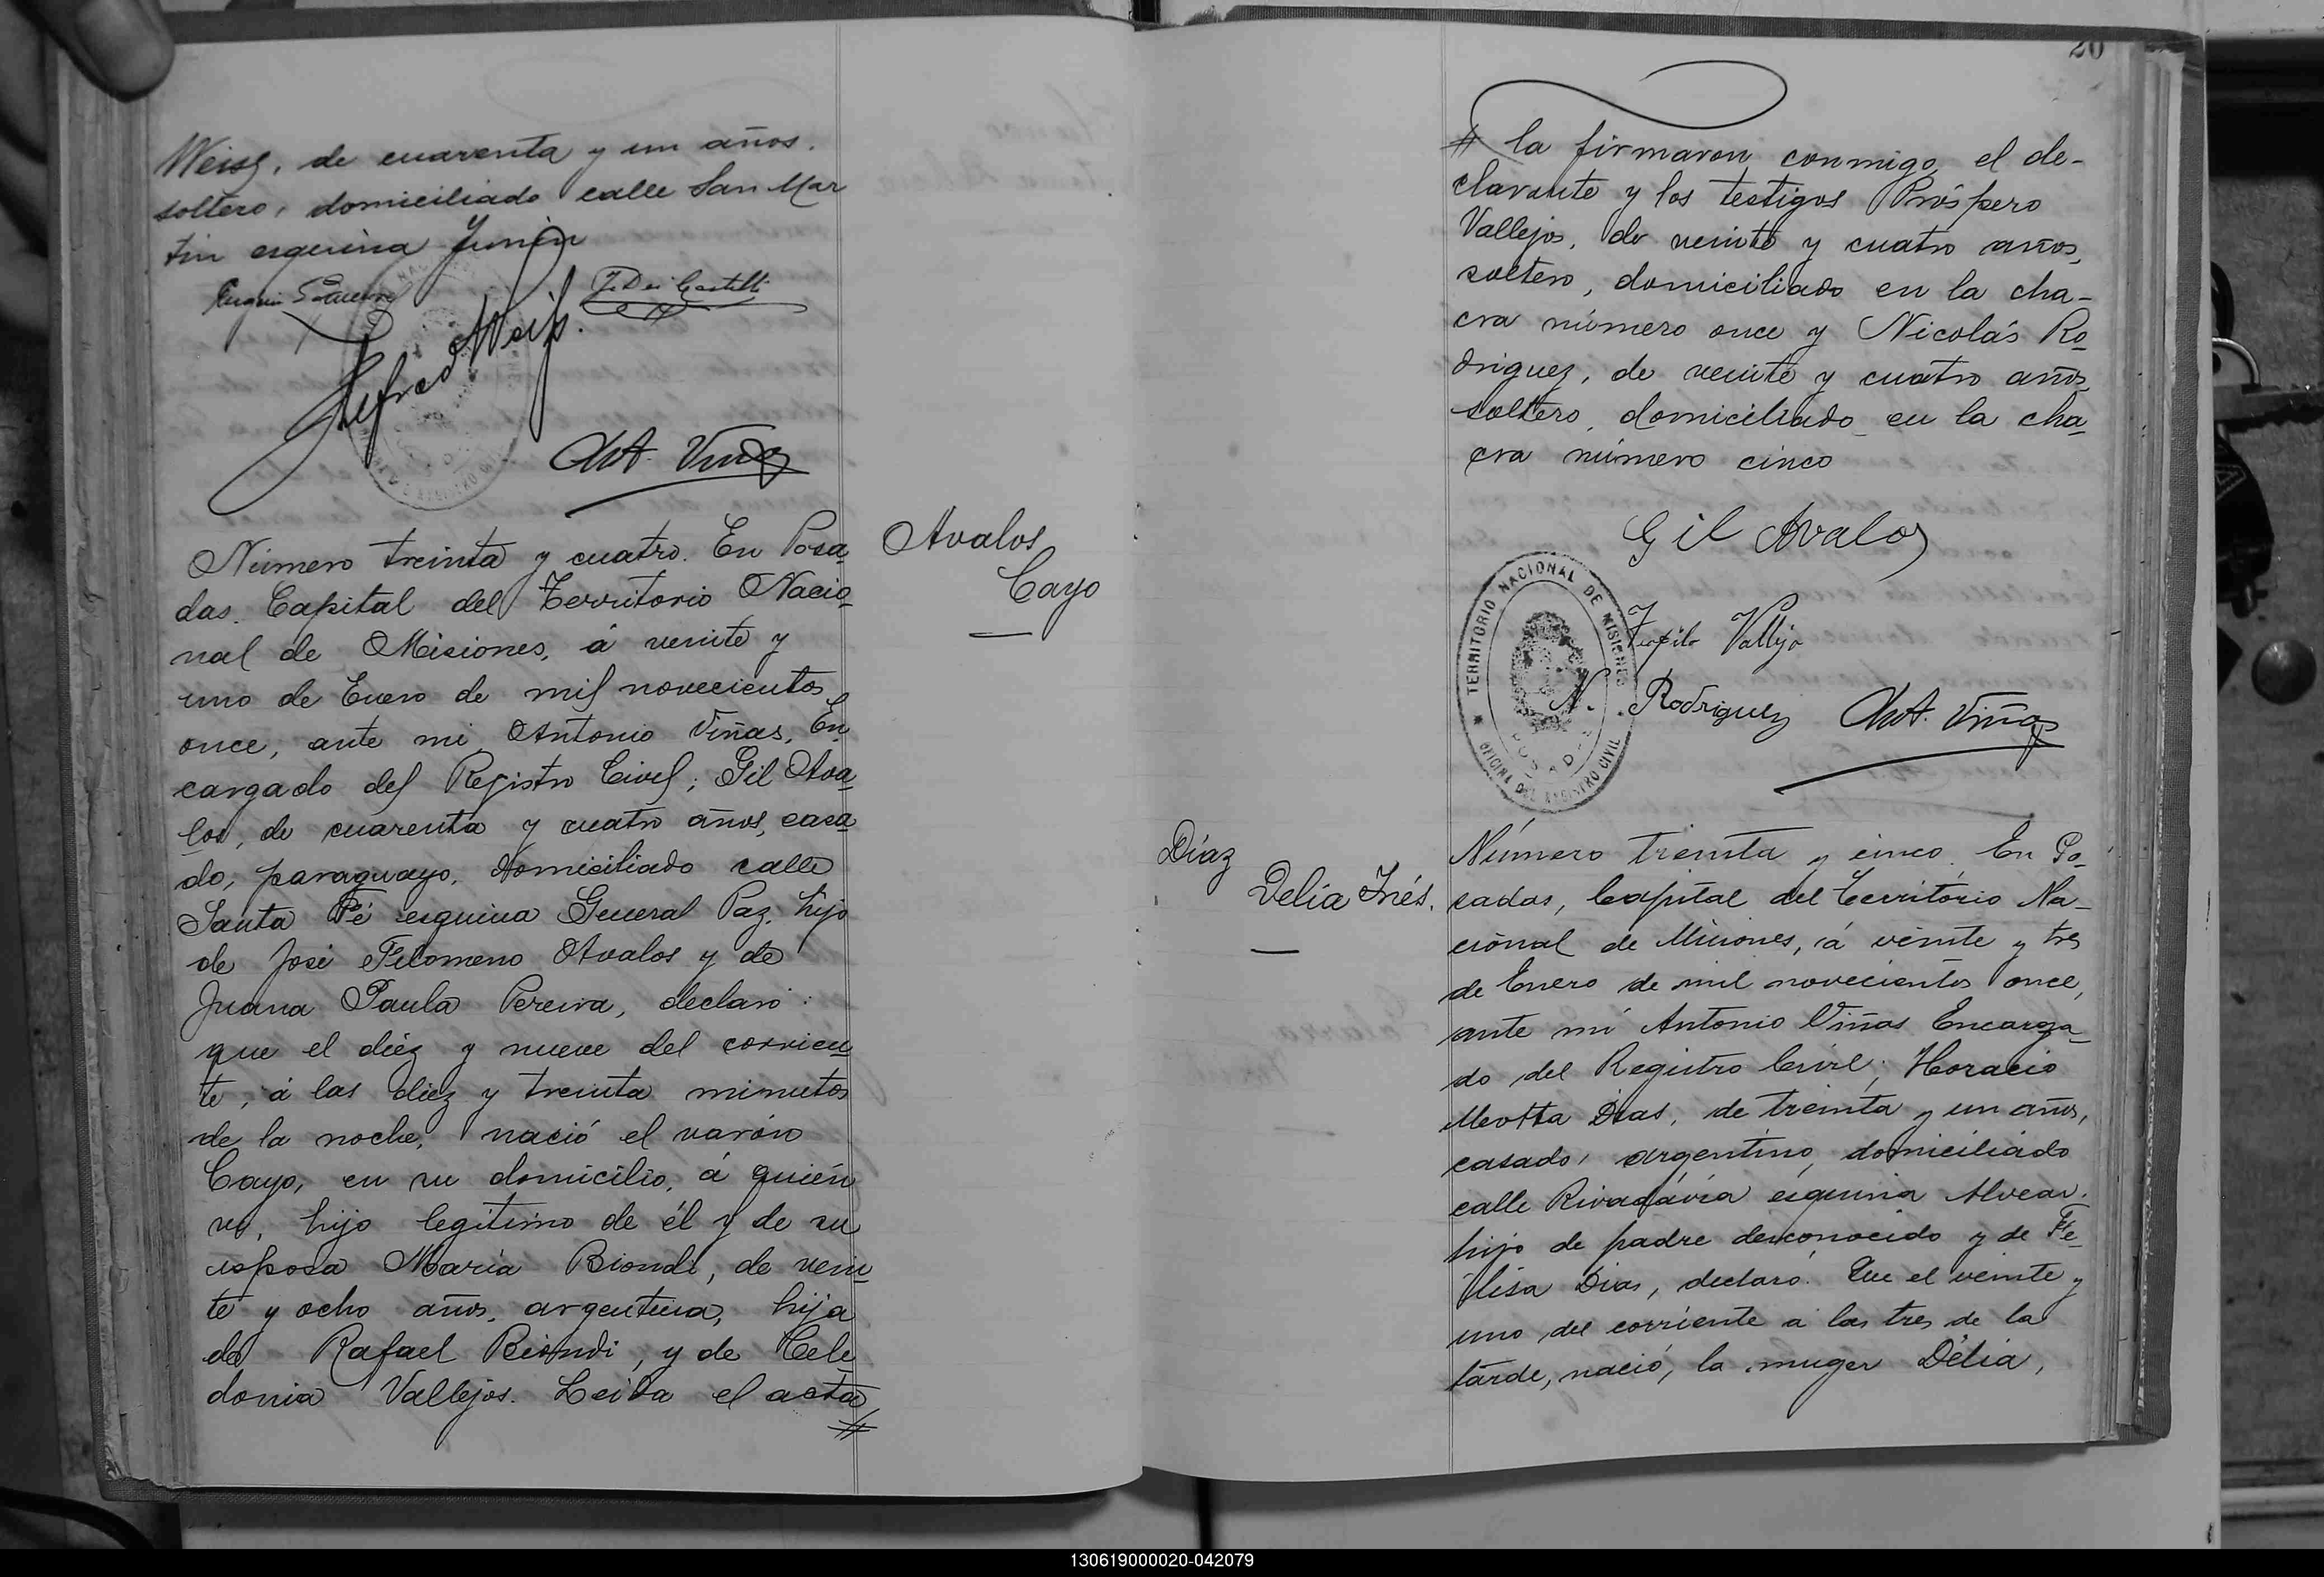 Weiss, de cuarenta y un años.
soltero, domiciliado calle San Mar
tin esquina Junin
Alfred Weiss.
Ant. Viñas
Número treinta y cuatro. En Posa-
das. Capital del Territorio Nacio-
nal de Misiones, á veinte y
uno de Enero de mil novecientos
once, ante mi Antonio Viñas, En-
cargado del Registro Civil; Gil Ava-
los, de cuarenta y cuatro años, casa-
do, paraguayo, domiciliado calle
Santa Fé esquina General Paz, hijo
de José Filomeno Avalos y de
Juana Paula Pereira, declaró:
que el diéz y nueve del corrien-
te, á las diez y treinta minutos
de la noche, nació el varón
Cayo, en su domicilio, á quién
vi, hijo legítimo de él y de su
esposa María Biondi, de vein-
te y ocho años, argentina, hija
de Rafael Biondi, y de Cele
donia Vallejos. Leida el acta
#
Avalos
Cayo
20
# la firmaron conmigo el de-
clarante y los testigos Próspero
Vallejos, de veinte y cuatro años,
soltero, domiciliado en la cha-
cra número once y Nicolás Ro-
driguez, de veinte y cuatro años,
soltero, domiciliado en la cha-
cra número cinco
Gil Avalos
Vallejo
N. Rodriguez
Ant. Viñas
TERRITORIO NACIONAL DE MISIONES
OFICINA DEL REGISTRO CIVIL
POSADAS
Díaz
Delia Inés.
Número treinta y cinco. En Po-
sadas, Capital del Territorio Na-
cional de Misiones, á veinte y tres
de Enero de mil novecientos once,
ante mí Antonio Viñas Encarga-
do del Registro Civil; Horacio
Motta Dias, de treinta y un años,
casado, argentino, domiciliado
calle Rivadávia esquina Alvear.
hijo de padre desconocido y de Fe-
lisa Dias, declaró. Que el veinte y
uno del corriente a las tres de la
tarde, nació, la muger Délia,
130619000020-042079